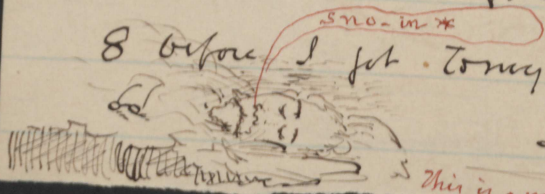 sno-in *
8 before I get
This is